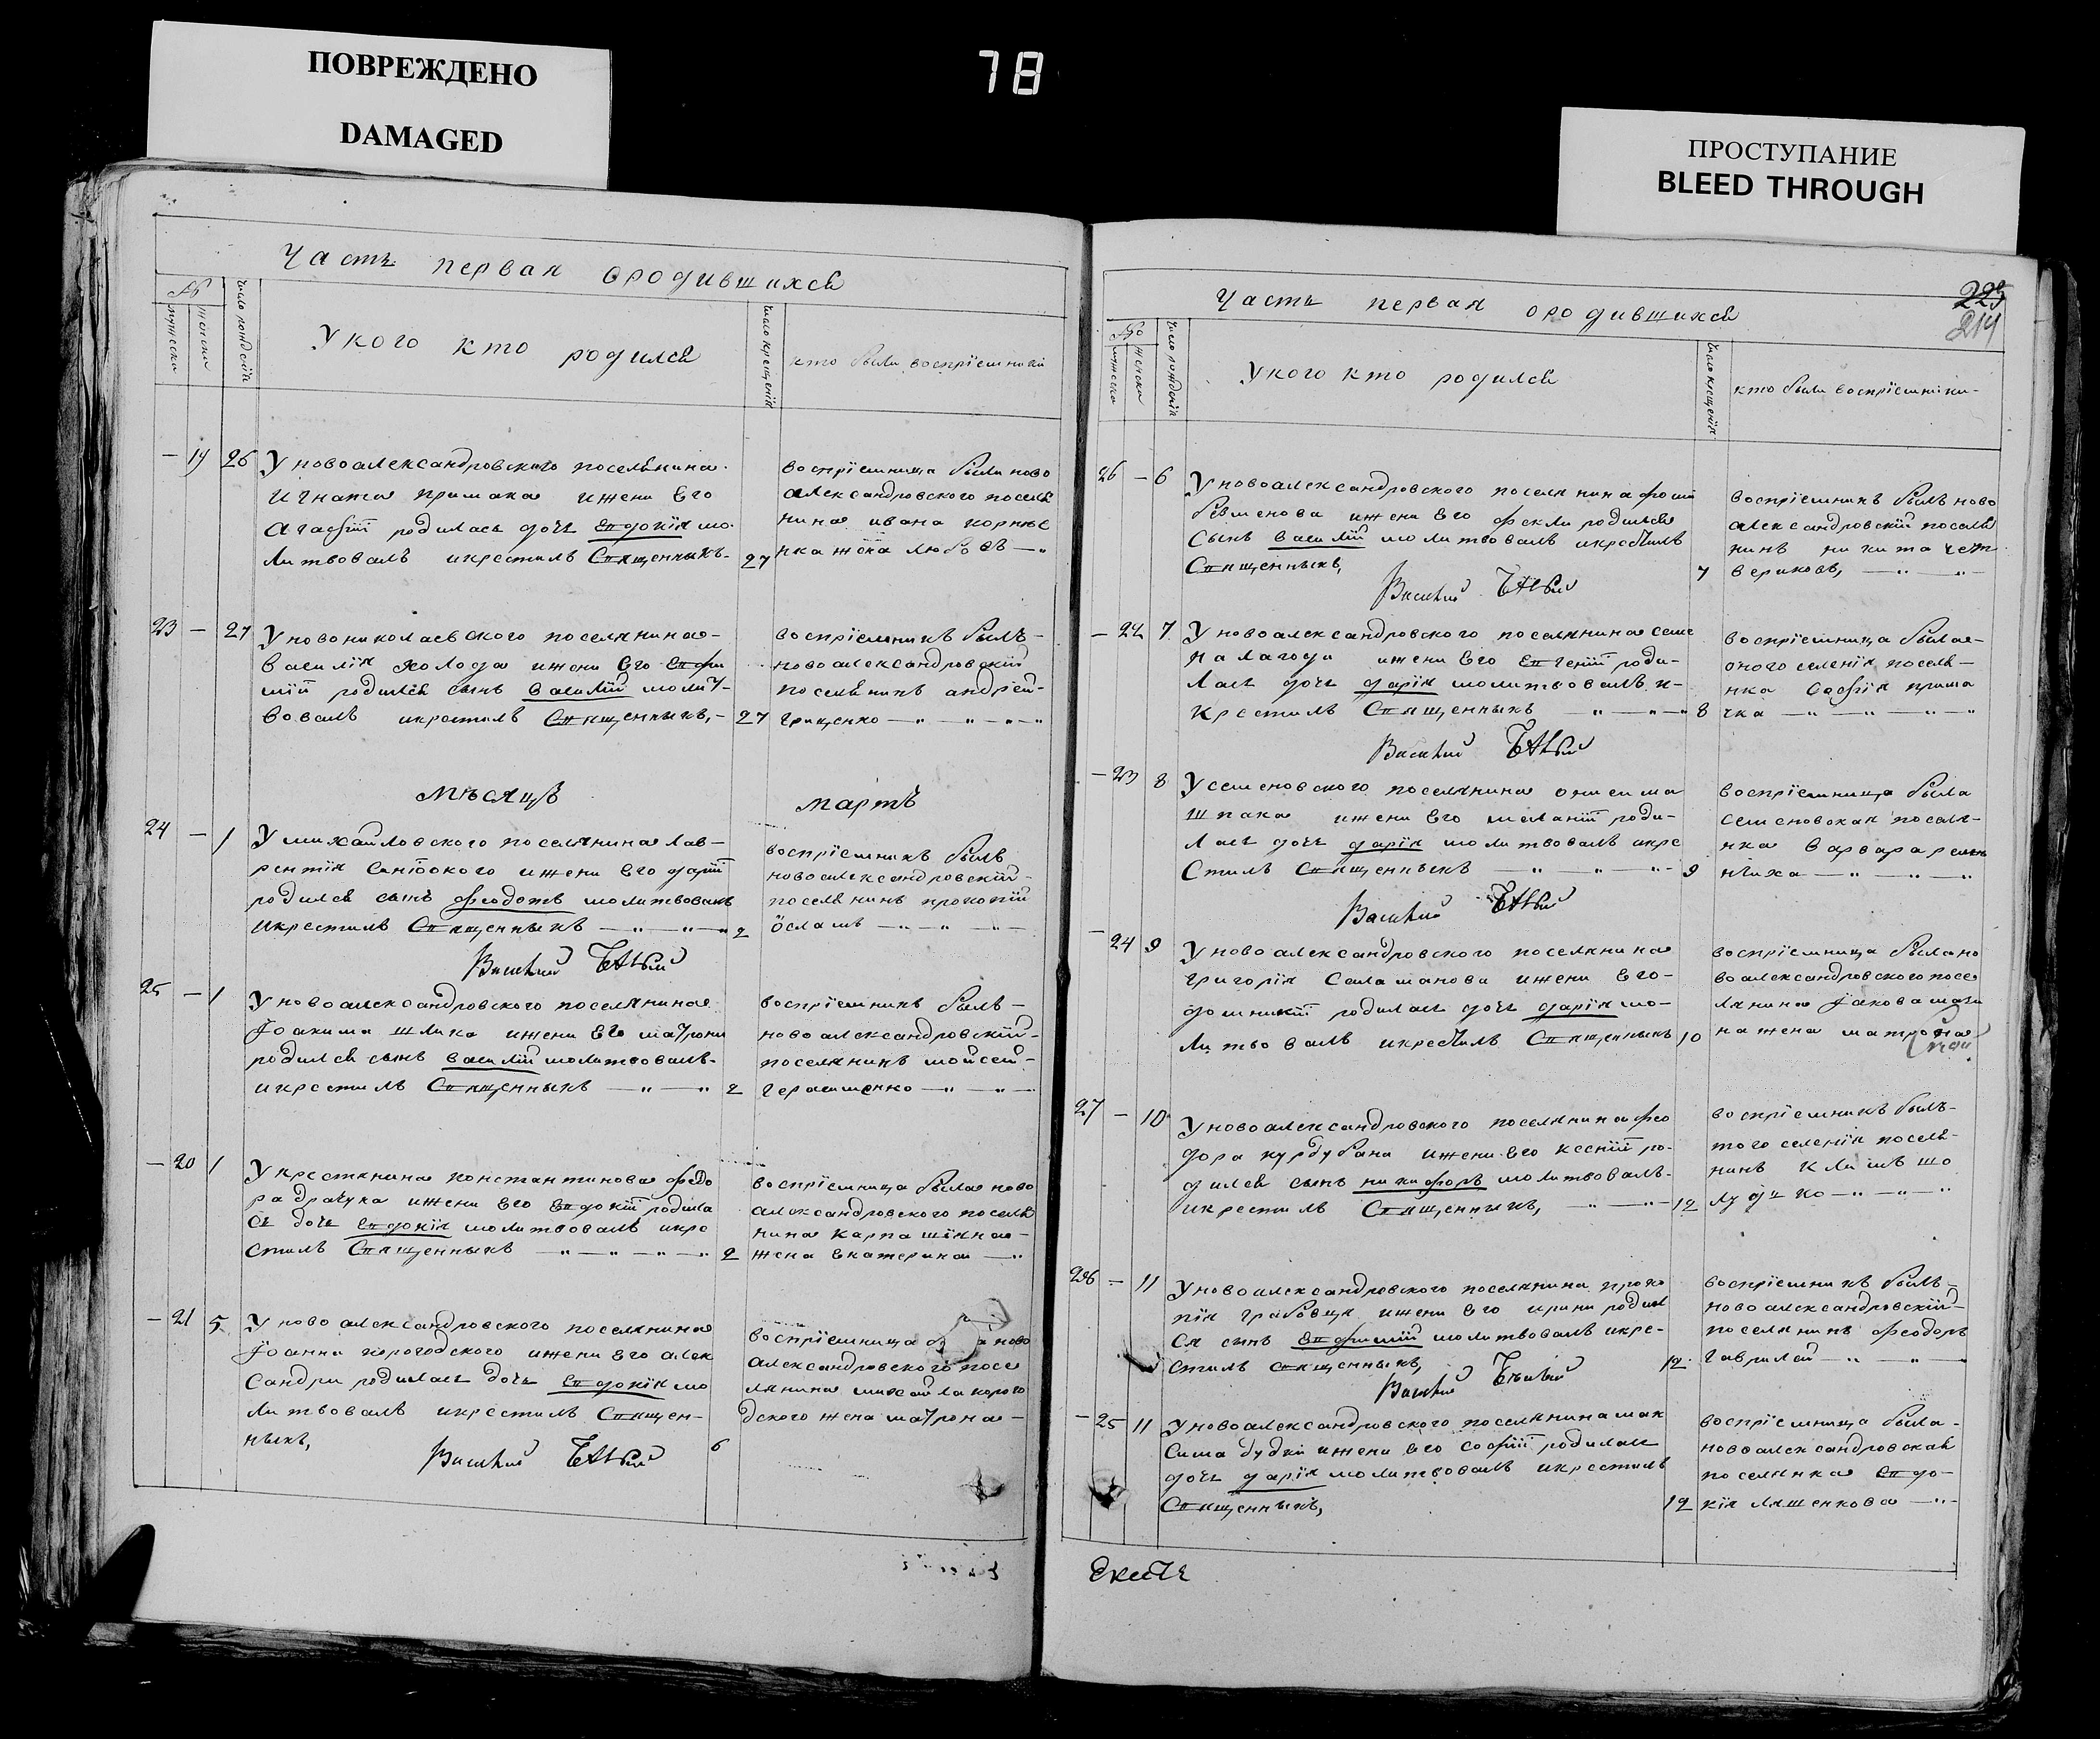 ПОВРЕЖДЕНО
DAMAGED
78
ПРОСТУПАНИЕ
BLEED THROUGH
Часть первая ородившихся
№
мужеска
женска
число рожденія
У кого кто родился
число крещенія
кто были воспріемники
— 19 26 У новоалександровского поселянина
Игната примака ижени Его
Агафіи родилась дочь Евдокія мо
литвовалъ икрестилъ Священникъ 27
воспріемница были ново
александровского поселя
нина ивана корніе
нка жена любовъ — „
23 — 27 У новониколаевского поселянина
василія холода ижени Его Евфи
міи родился сынъ василій молит
вовалъ икрестилъ Священникъ, 27
воспріемникъ былъ
новоалександровскій
поселянинъ андрей
грищенко — „ — „ — „
мѣсяцъ мартъ
24 — 1 У михайловского поселянина лав
рентія ижени Его даріи
родился сынъ феодотъ молитвовалъ
икрестилъ Священникъ — „ — „ 2
воспріемникъ былъ
новоалександровскій
поселянинъ прокопій
— „ — „ —
Василий Бѣлый
25 — 1 У новоалександровского поселянина
Іоакима шлика ижени Его матрони
родился сынъ василій молитвовалъ
икрестилъ Священникъ — „ — „ 2
воспріемникъ былъ
новоалександровскій
поселянинъ мойсей
герасименко — „ — „ —
— 20 1 У крестянина константинова федо
ра драчука ижени Его Евдокіи родила
сь дочь Евдокія молитвовалъ икре
стилъ Священникъ — „ — „ — „ 2
воспріемница была ново
александровского поселя
нина карпа
жена Екатерина — „
— 21 5 У новоалександровского поселянина
Іоанна корогодского ижени Его алек
сандри родилась дочь Евдокія мо
литвовалъ икрестилъ Священ
никъ, 6
воспріемница ново
александровского посе
лянина михайла корого
дского жена матрона
Василий Бѣлый
Часть первая ородившихся
214
№
мужеска
женска
число рожденія
У кого кто родился
число крещенія
кто были воспріемники
26 — 6 У новоалександровского поселянина
ижени Его фекли родился
сынъ василій молитвовалъ икрестилъ
Священникъ, 7
воспріемникъ былъ ново
александровскій поселя
нинъ никита чет
вериковъ, — „ — „ —
Василий Бѣлый
— 22 7 У новоалександровского поселянина семе
на лагоди ижени Его Евгеніи роди
лась дочь дарія молитвовалъ и
крестилъ Священникъ — „ — „ 8
воспріемница была
оного селенія поселя
нка Софія прима
чка — „ — „ — „ — „
Василий Бѣлый
— 23 8 У семеновского поселянина онисима
шпака ижени Его меланіи роди
лась дочь дарія молитвовалъ икре
стилъ Священникъ — „ — „ — „ 9
воспріемница была
семеновская поселя
нка варвара
— „ — „ — „
Василий Бѣлый
— 24 9 У новоалександровского поселянина
григорія Саламанова ижени Его
домникіи родилась дочь дарія мо
литвовалъ икрестилъ Священникъ 10
воспріемница была но
воалександровского посе
лянина Іакова
на жена матрона
27 — 10 У новоалександровского поселянина фео
дора курдубана ижени Его ксеніи ро
дился сынъ никифоръ молитвовалъ
икрестилъ Священникъ, — „ — „ 12
воспріемникъ былъ
того селенія поселя
нинъ Климъ шо
лудко — „ — „ — „
28 — 11 У новоалександровского поселянина проко
пія грабовця ижени Его ирини родил
ся сынъ Евфимій молитвовалъ икре
стилъ Священникъ, 12
воспріемникъ былъ
новоалександровскій
поселянинъ феодоръ
гаврилей — „ — „ —
Василий Бѣлый
— 25 11 У новоалександровского поселянина мак
сима дудки ижени Его софіи родилась
дочь дарія молитвовалъ икрестилъ
Священникъ, 12
воспріемница была
новоалександровская
поселянка Евдо
кія ляшенкова — „ —